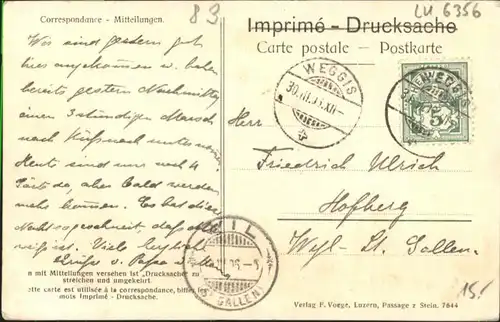 83
LU 6356
Correspondance - Mitteilungen.
Imprimé - Drucksache
Carte postale — Postkarte
Wir sind gestern gut
hier angekommen u. haben
bereits gestern Nachmittag
einen 3 stündigen Marsch
nach Küßnach unternommen.
Heute sind wir noch 4
Gäste da, aber bald werden
mehr kommen. Es hat diese
Nacht so geschneit, daß alles
weiß ist. Viele herzliche
Grüße v. Papa u. Mama
WEGGIS
30.III.
XII
WEGGIS
5
Herr
Friedrich Ulrich
Hofberg
Wyl- St. Gallen.
WIL
(ST. GALLEN)
n mit Mitteilungen versehen ist "Drucksache" zu
streichen und umgekehrt.
ette carte est utilisée à la correspondance, biffer les
mots Imprimé - Drucksache.
Verlag F. Voege, Luzern, Passage z Stein. 7644
15.-